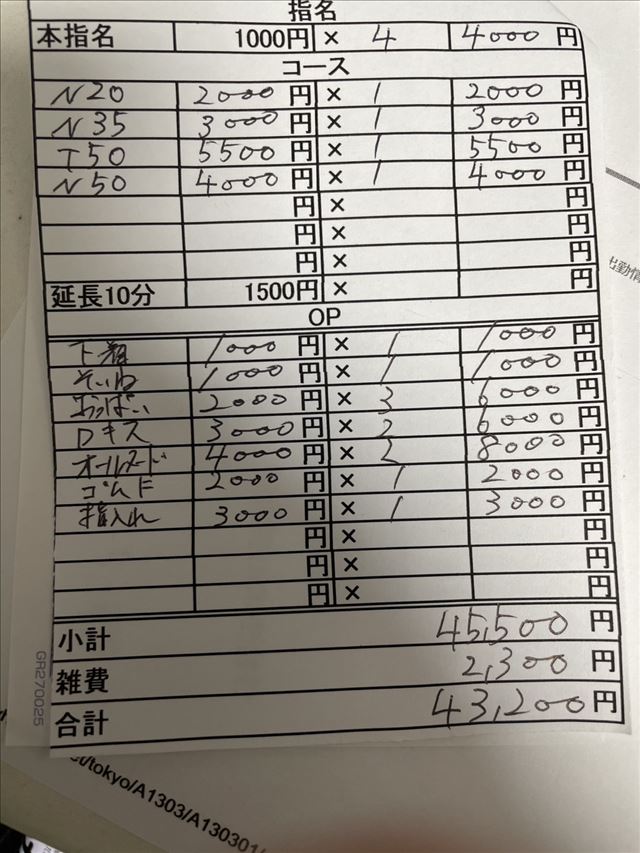 指名
本指名 1000円 × 4 4000 円
コース
N20 2000 円 × 1 2000 円
N35 3000 円 × 1 3000 円
T50 5500 円 × 1 5500 円
N50 4000 円 × 1 4000 円
円 × 円
円 × 円
円 × 円
延長10分 1500円 × 円
OP
下着 1000 円 × 1 1000 円
そいね 1000 円 × 1 1000 円
おっぱい 2000 円 × 3 6000 円
Dキス 3000 円 × 2 6000 円
オールヌード 4000 円 × 2 8000 円
2000 円 × 1 2000 円
指入れ 3000 円 × 1 3000 円
円 × 円
円 × 円
円 × 円
小計 45,500 円
雑費 2,300 円
合計 43,200 円
GR270025
出勤情
/tokyo/A1303/A130301/